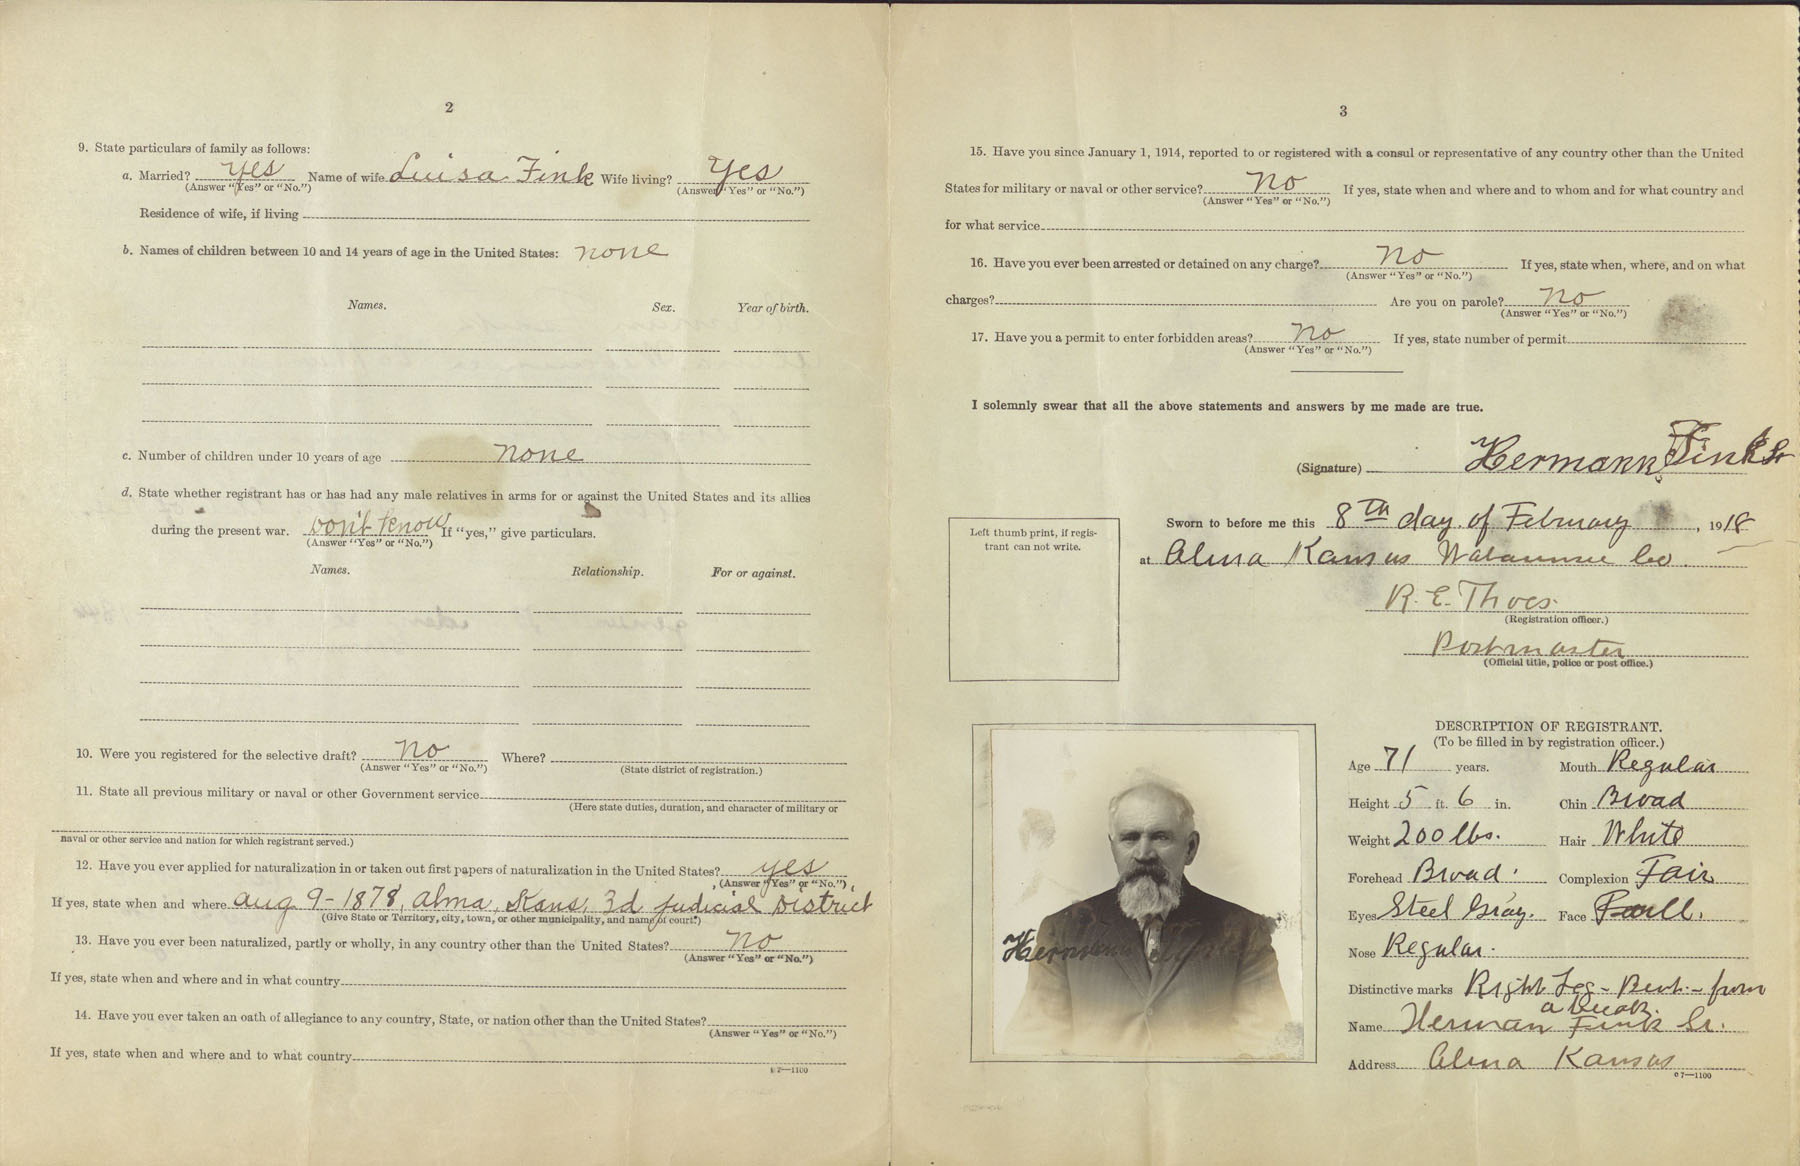 2
9. State particulars of family as follows:
a. Married? yes Name of wife Luisa Fink Wife living? yes
(Answer "Yes" or "No.") (Answer "Yes" or "No.")
Residence of wife, if living
b. Names of children between 10 and 14 years of age in the United States: none
Names. Sex. Year of birth.
c. Number of children under 10 years of age none
d. State whether registrant has or has had any male relatives in arms for or against the United States and its allies
during the present war. Don't know If "yes," give particulars.
(Answer "Yes" or "No.")
Names. Relationship. For or against.
10. Were you registered for the selective draft? No Where?
(Answer "Yes" or "No.") (State district of registration.)
11. State all previous military or naval or other Government service
(Here state duties, duration, and character of military or
naval or other service and nation for which registrant served.)
12. Have you ever applied for naturalization in or taken out first papers of naturalization in the United States? yes
(Answer "Yes" or "No.")
If yes, state when and where Aug 9-1878, Alma, Kans, 3d Judicial District
(Give State or Territory, city, town, or other municipality, and name of court.)
13. Have you ever been naturalized, partly or wholly, in any country other than the United States? No
(Answer "Yes" or "No.")
If yes, state when and where and in what country
14. Have you ever taken an oath of allegiance to any country, State, or nation other than the United States?
(Answer "Yes" or "No.")
If yes, state when and where and to what country
c 7—1100
3
15. Have you since January 1, 1914, reported to or registered with a consul or representative of any country other than the United
States for military or naval or other service? No If yes, state when and where and to whom and for what country and
(Answer "Yes" or "No.")
for what service
16. Have you ever been arrested or detained on any charge? No If yes, state when, where, and on what
(Answer "Yes" or "No.")
charges? Are you on parole? No
(Answer "Yes" or "No.")
17. Have you a permit to enter forbidden areas? No If yes, state number of permit
(Answer "Yes" or "No.")
I solemnly swear that all the above statements and answers by me made are true.
(Signature) Hermann Fink Sr
Left thumb print, if regis-
trant can not write.
Sworn to before me this 8th day of February, 1918
at Alma Kansas Wabaunsee Co.
R. E. Thoes.
(Registration officer.)
Postmaster
(Official title, police or post office.)
Hermann
DESCRIPTION OF REGISTRANT.
(To be filled in by registration officer.)
Age 71 years. Mouth Regular
Height 5 ft. 6 in. Chin Broad
Weight 200 lbs. Hair White
Forehead Broad. Complexion Fair
Eyes Steel Gray. Face Full.
Nose Regular.
Distinctive marks Right Leg - Bent - from
a break.
Name Herman Fink Sr.
Address Alma Kansas
c 7—1100